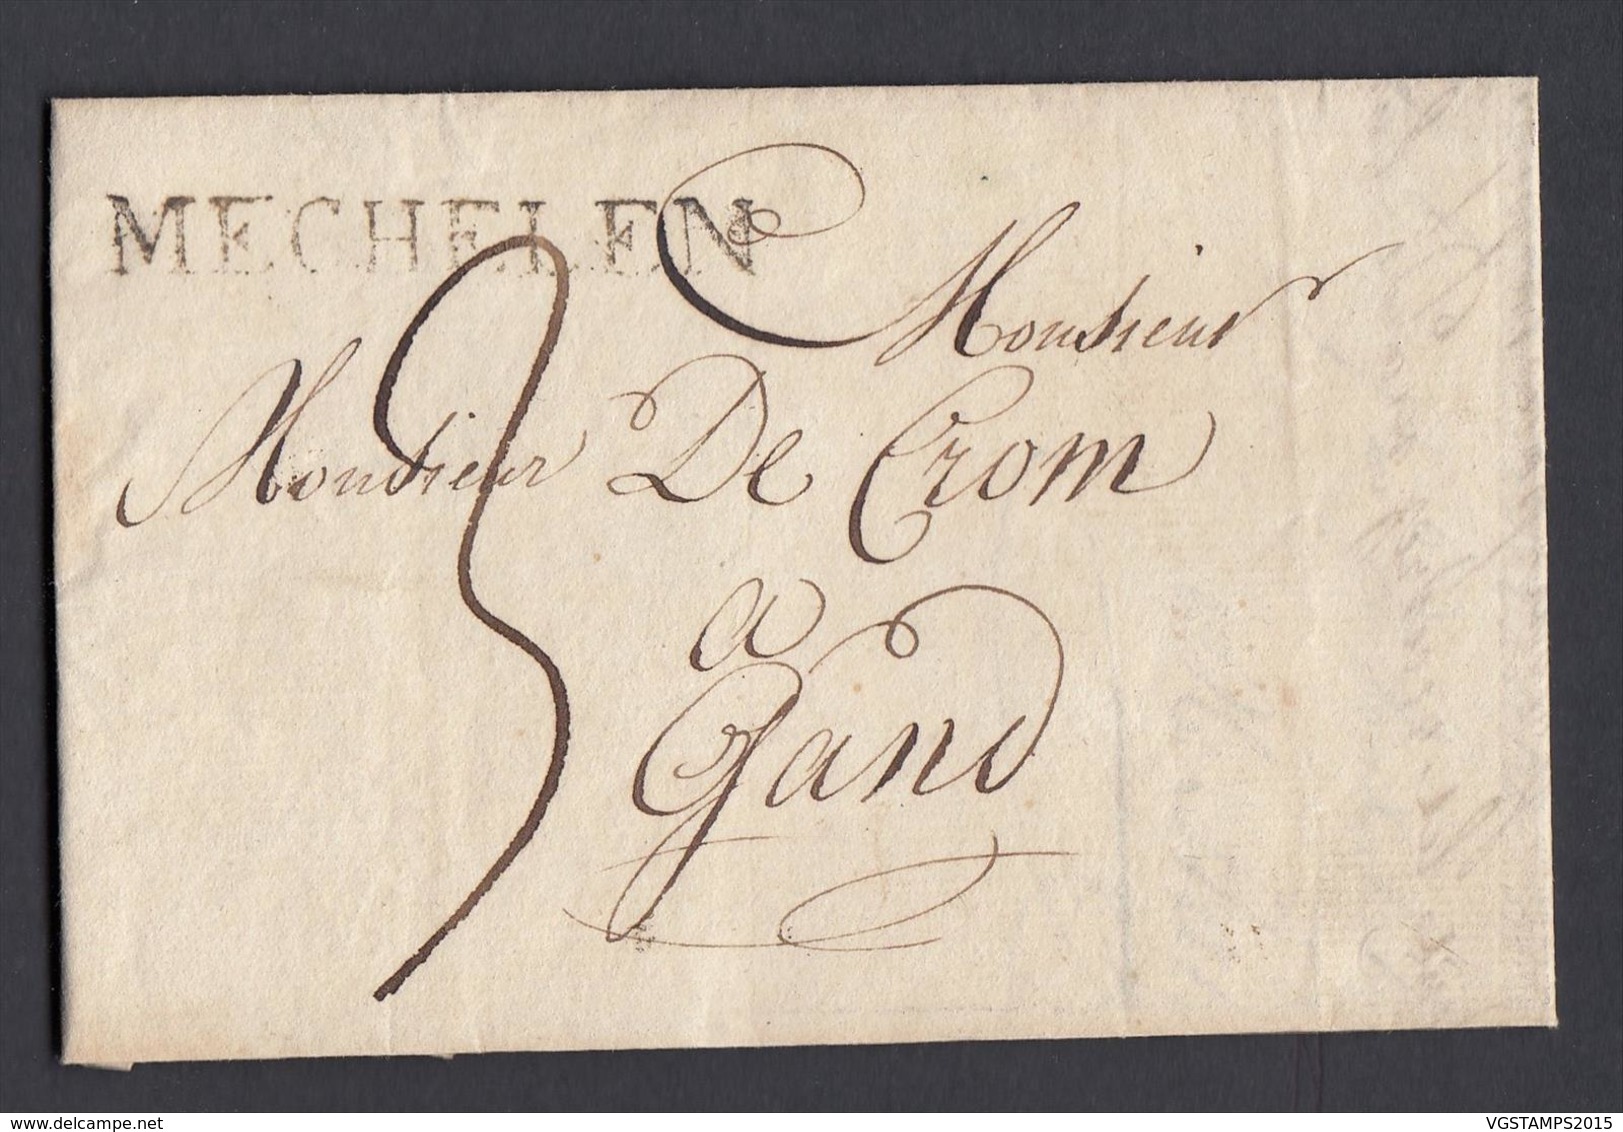 MECHELEN
Monsieur
Monsieur De Crom
3
a
Gand
delcampe.net
VGSTAMPS2015